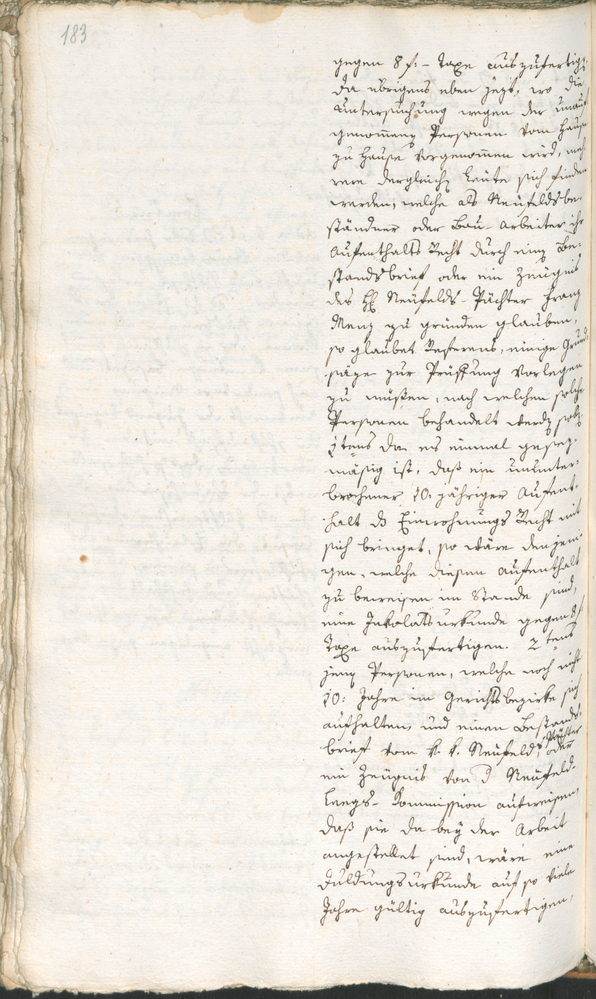 183
gegen 8 f – Taxe auszufertigen
da übrigens eben jezt, wo die
Untersuchung wegen der unauf
genommenen Personen vom Hause
zu Hause vorgenommen wird, meh
rere dergleichen Leute sich finden
werden, welche als Neufeldsbe-
ständner oder Bau-Arbeiter ihr
Aufenthalts Recht durch eine Be-
standsbrief oder ein Zeugnis
des H Neufelds-Pächter Franz
Menz zu gründen glauben,
so glaubet Referens, einige Grund
säze zur Prüfung vorlegen
zu müßen, nach welchen solche
Personen behandelt werden sollen
1tens da es einmal gesez-
mäßig ist, daß ein ununter-
brochener 10 jähriger Aufent-
halt das Einwohnungs Recht mit
sich bringet, so wäre denjeni-
gen, welche diesen Aufenthalt
zu beweisen im Stande sind,
eine Inkolats urkunde gegen 8 f
Taxe auszufertigen. 2tens
jene Personen, welche noch nicht
10: Jahre im Gerichtsbezirke sich
aufhalten, und einen Bestands-
brief vom k. k. Neufelds Pächter oder
ein Zeugnis von d Neufeld-
Kommission aufweisen,
daß sie da bey der Arbeit
angestellet sind, wäre eine
Duldungsurkunde auf so viele
Jahre gültig auszufertigen,